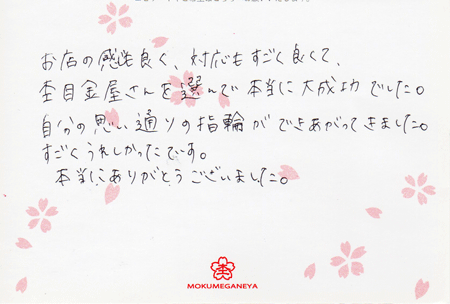 お店の感じも良く、対応もすごく良くて、
杢目金屋さんを選んで本当に大成功でした。
自分の思い通りの指輪ができあがってきました。
すごくうれしかったです。
本当にありがとうございました。
杢
MOKUMEGANEYA